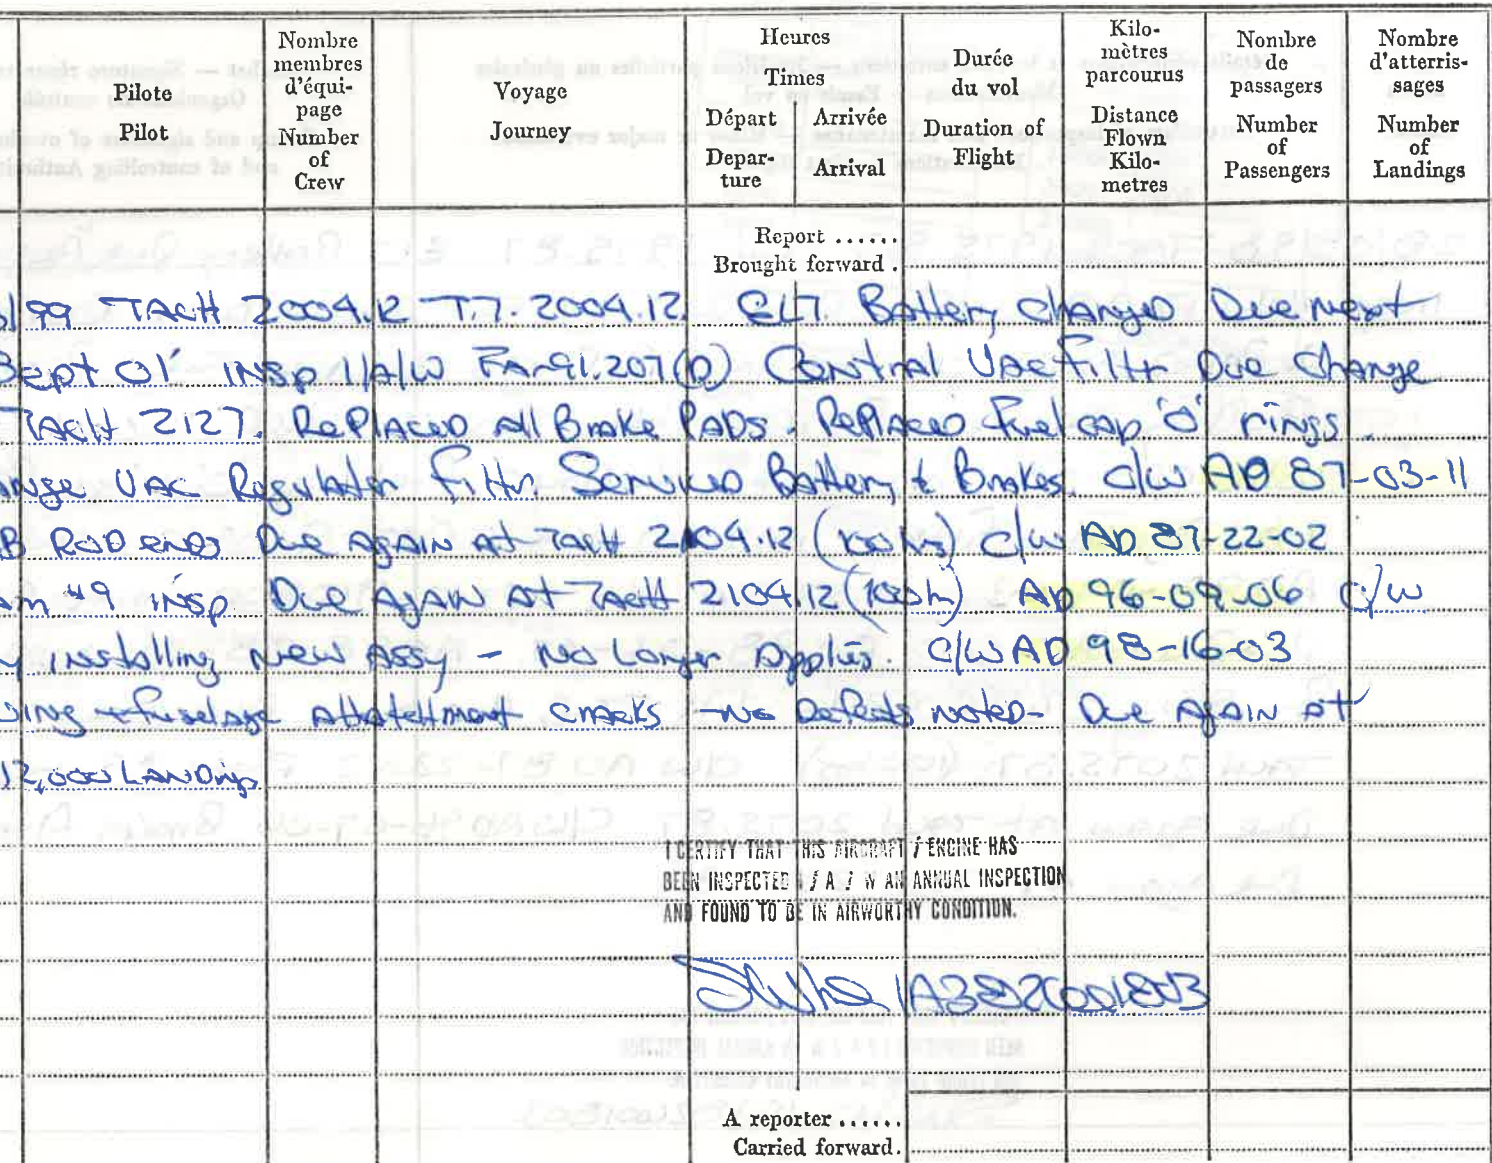 Pilote
Pilot
Nombre
membres
d'équi-
page
Number
of
Crew
Voyage
Journey
Heures
Times
Départ
Depar-
ture
Arrivée
Arrival
Durée
du vol
Duration of
Flight
Kilo-
mètres
parcourus
Distance
Flown
Kilo-
metres
Nombre
de
passagers
Number
of
Passengers
Nombre
d'atterris-
sages
Number
of
Landings
Report ......
Brought forward .
/99 TACH 2004.12 T.T. 2004.12. ELT. Battery changed Due next
Sept 01' INSP I/A/W FAR 91.207(D) Central Vac Filtr Due Change
TACH 2127. Replaced All Brake PADs. Replaced Fuel cap 'O' rings.
ange Vac Regulator Filtr. Serviced Battery & Brakes. C/W AD 87-03-11
B ROD ends Due Again at Tach 2104.12 (100 hrs) C/W AD 87-22-02
am #9 insp Due Again At Tach 2104.12 (100h) AD 96-09-06 C/W
y installing New Assy - No Longer Applies. C/W AD 98-16-03
wing + fuselage attatchment cracks - No Defects noted - Due Again at
12,000 Landings
I CERTIFY THAT THIS AIRCRAFT / ENGINE HAS
BEEN INSPECTED I / A / W AN ANNUAL INSPECTION
AND FOUND TO BE IN AIRWORTHY CONDITION.
A reporter ......
Carried forward.